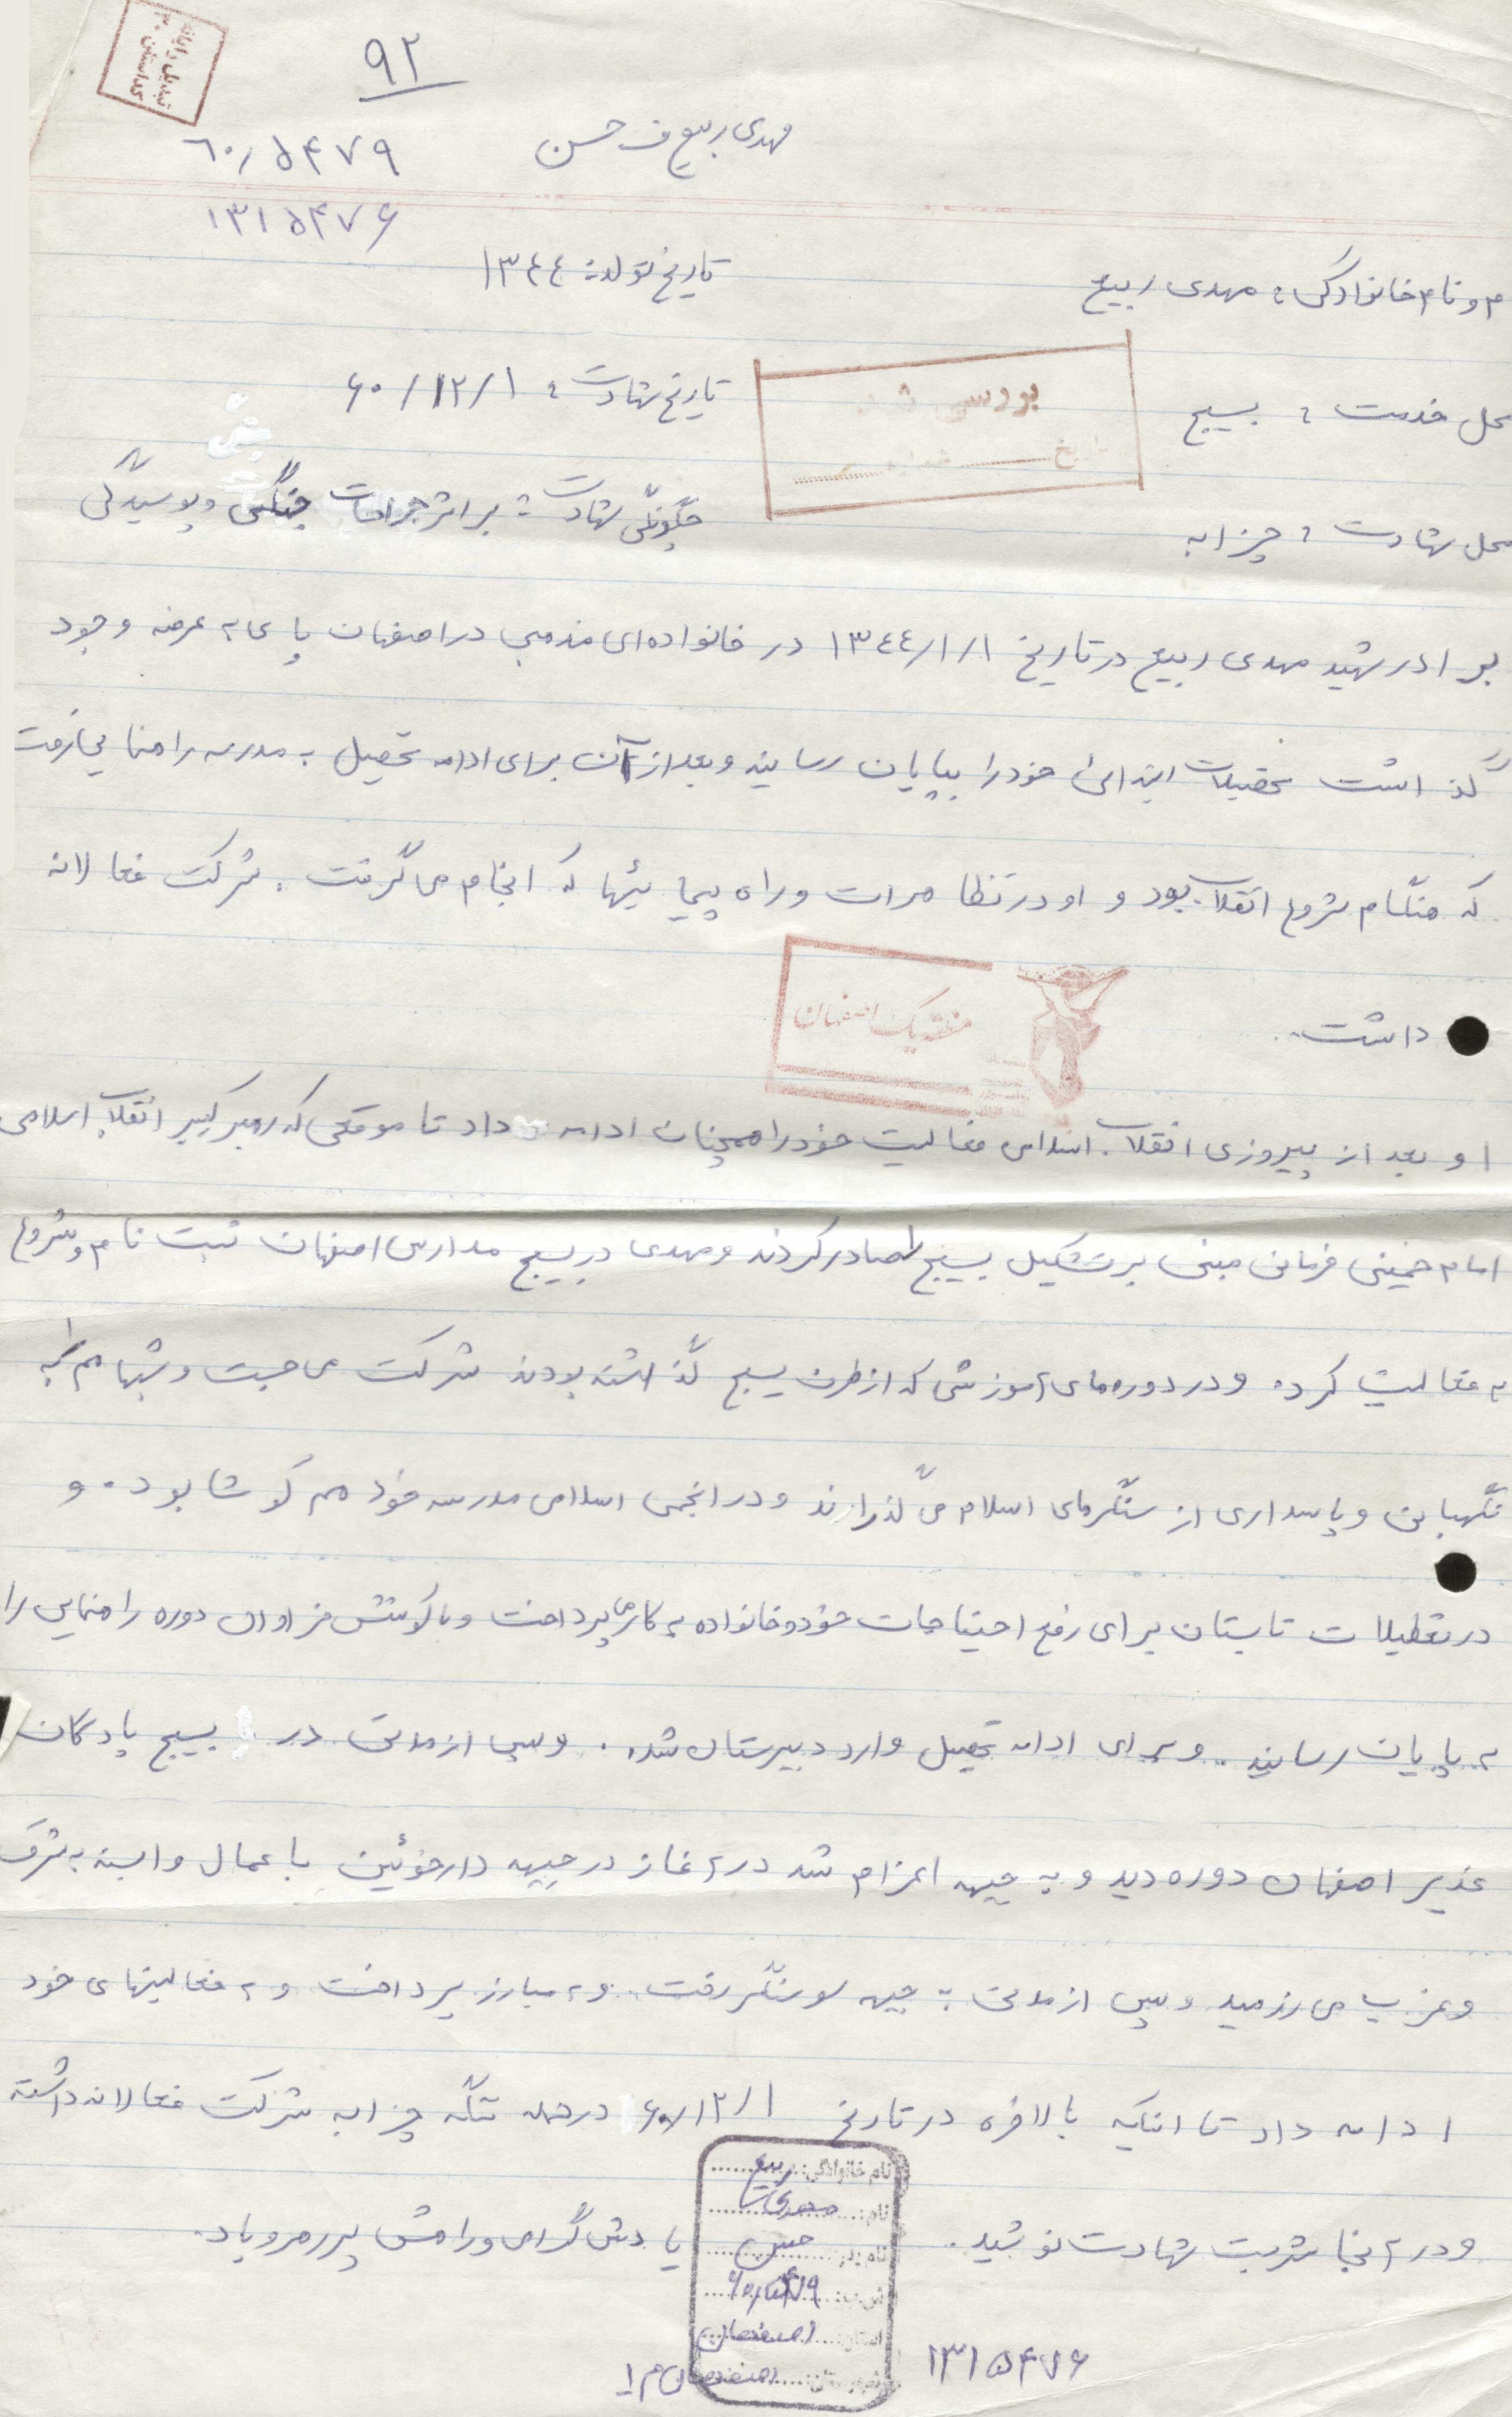 ۹۲
مهدی ربیع ف حسن
۶۰/۵۴۷۹
۱۳۱۵۴۷۶
م و نام خانوادگی: مهدی ربیع
تاریخ تولد: ۱۳۴۴
محل خدمت: بسیج
تاریخ شهادت: ۶۰/۱۲/۱
بررسی شد
تاریخ ......... شماره .........
محل شهادت: چزابه
چگونگی شهادت: بر اثر جراحات جنگی و پوسیدگی
برادر شهید مهدی ربیع در تاریخ ۱۳۴۴/۱/۱ در خانواده‌ای مذهبی در اصفهان پای به عرصه وجود
گذاشت تحصیلات ابتدائی خود را بپایان رسانید و بعد از آن برای ادامه تحصیل به مدرسه راهنمایی رفت
که هنگام شروع انقلاب بود و او در تظاهرات و راه پیمائیها که انجام می گرفت، شرکت فعالانه
داشت.
منطقه یک اصفهان
او بعد از پیروزی انقلاب اسلامی فعالیت خود را همچنان ادامه داد تا موقعی که رهبر کبیر انقلاب اسلامی
امام خمینی فرمانی مبنی بر تشکیل بسیج را صادر کردند و مهدی در بسیج مدارس اصفهان ثبت نام و شروع
به فعالیت کرد. و در دوره‌های آموزشی که از طرف بسیج گذاشته بودند شرکت می جست و شبها هم را به
نگهبانی و پاسداری از سنگرهای اسلام می گذراند و در انجمن اسلامی مدرسه خود هم کوشا بود. و
در تعطیلات تابستان برای رفع احتیاجات خود و خانواده به کار می پرداخت و با کوشش فراوان دوره راهنمایی را
به پایان رسانید. و برای ادامه تحصیل وارد دبیرستان شد. و سپس از مدتی در بسیج پادگان
غدیر اصفهان دوره دید و به جبهه اعزام شد در آغاز در جبهه دارخوئین با عمال وابسته به شرق
و غرب می رزمید و سپس از مدتی به جبهه سوسنگرد رفت. و به مبارزه پرداخت و به فعالیتهای خود
ادامه داد تا اینکه بالاخره در تاریخ ۶۰/۱۲/۱ در حمله تنگه چزابه شرکت فعالانه داشته
و در آنجا شربت شهادت نوشید. یادش گرامی و راهش پررهرو باد.
نام خانوادگی: ربیع
نام: مهدی
نام پدر: حسن
ش.ب: ۶۰/۵۴۷۹
استان: اصفهان
شهرستان: اصفهان م ۱
۱۳۱۵۴۷۶